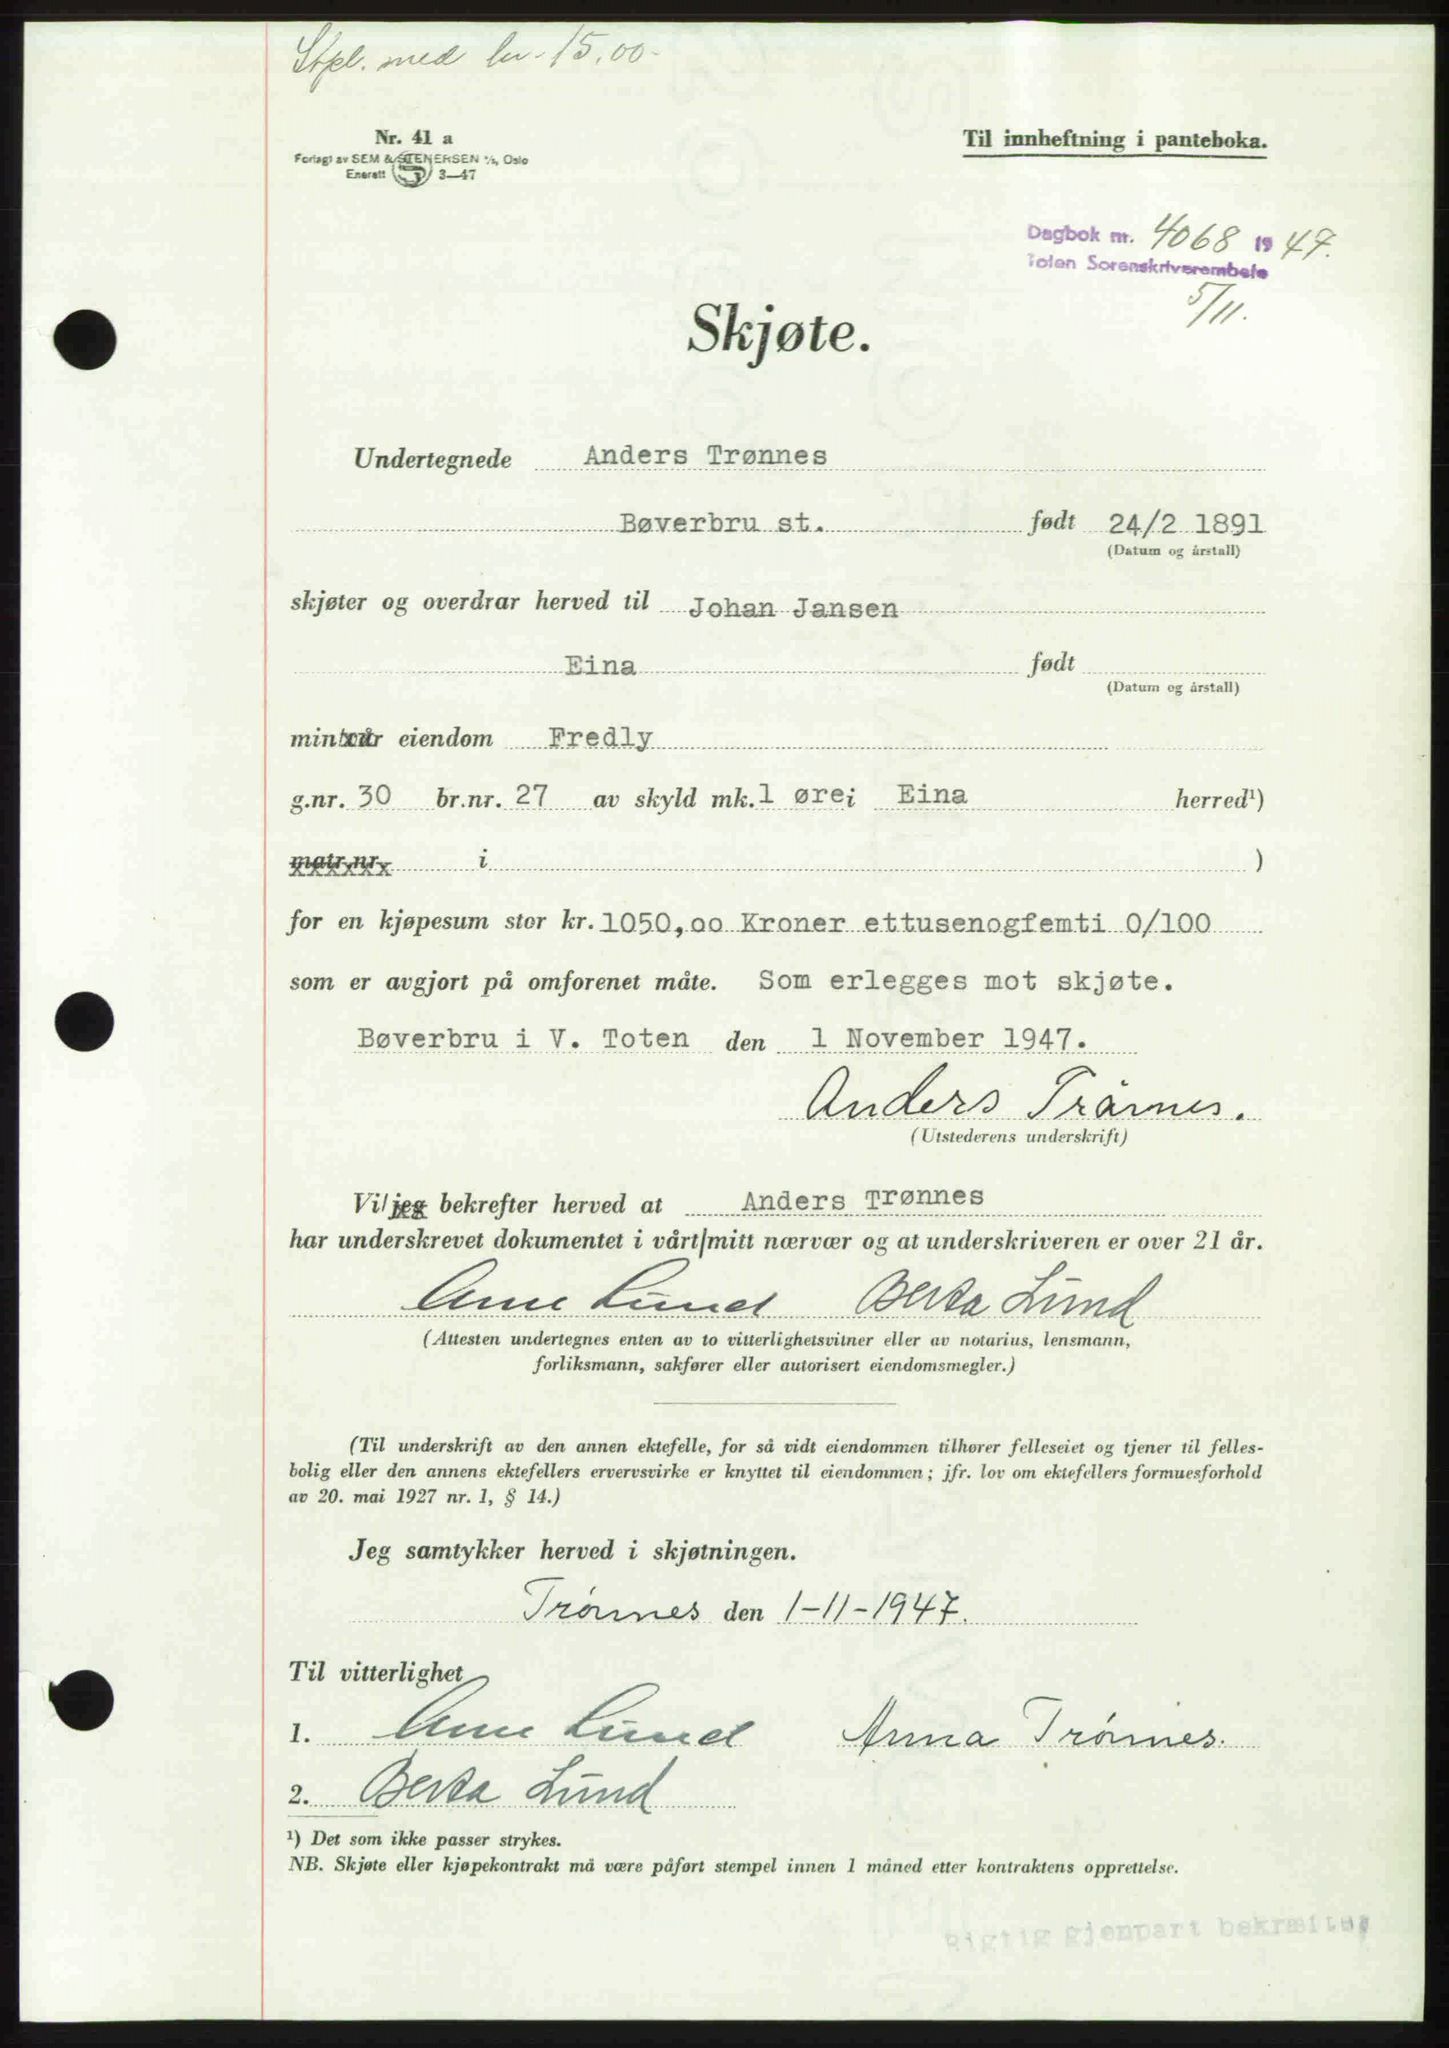 Stpl. med kr. 15,00-
Nr. 41 a
Forlagt av SEM & STENERSEN A/S, Oslo
Enerett 3—47
Til innheftning i panteboka.
Dagbok nr. 4068 1947.
Toten Sorenskriverembete
5/11.
Skjøte.
Undertegnede Anders Trønnes
Bøverbru st. født 24/2 1891
(Datum og årstall)
skjøter og overdrar herved til Johan Jansen
Eina født
(Datum og årstall)
min/vår eiendom Fredly
g.nr. 30 br.nr. 27 av skyld mk. 1 øre i Eina herred¹)
matr.nr. i )
for en kjøpesum stor kr. 1050,oo Kroner ettusenogfemti 0/100
som er avgjort på omforenet måte. Som erlegges mot skjøte.
Bøverbru i V. Toten den 1 November 1947.
Anders Trønnes.
(Utstederens underskrift)
Vi/jeg bekrefter herved at Anders Trønnes
har underskrevet dokumentet i vårt/mitt nærvær og at underskriveren er over 21 år.
Anne Lund Berta Lund
(Attesten undertegnes enten av to vitterlighetsvitner eller av notarius, lensmann,
forliksmann, sakfører eller autorisert eiendomsmegler.)
(Til underskrift av den annen ektefelle, for så vidt eiendommen tilhører felleseiet og tjener til felles-
bolig eller den annens ektefellers ervervsvirke er knyttet til eiendommen; jfr. lov om ektefellers formuesforhold
av 20. mai 1927 nr. 1, § 14.)
Jeg samtykker herved i skjøtningen.
Trønnes den 1-11-1947.
Til vitterlighet
1. Anne Lund Anna Trønnes.
2. Berta Lund
¹) Det som ikke passer strykes.
NB. Skjøte eller kjøpekontrakt må være påført stempel innen 1 måned etter kontraktens opprettelse.
Rigtig gjenpart bekræftes